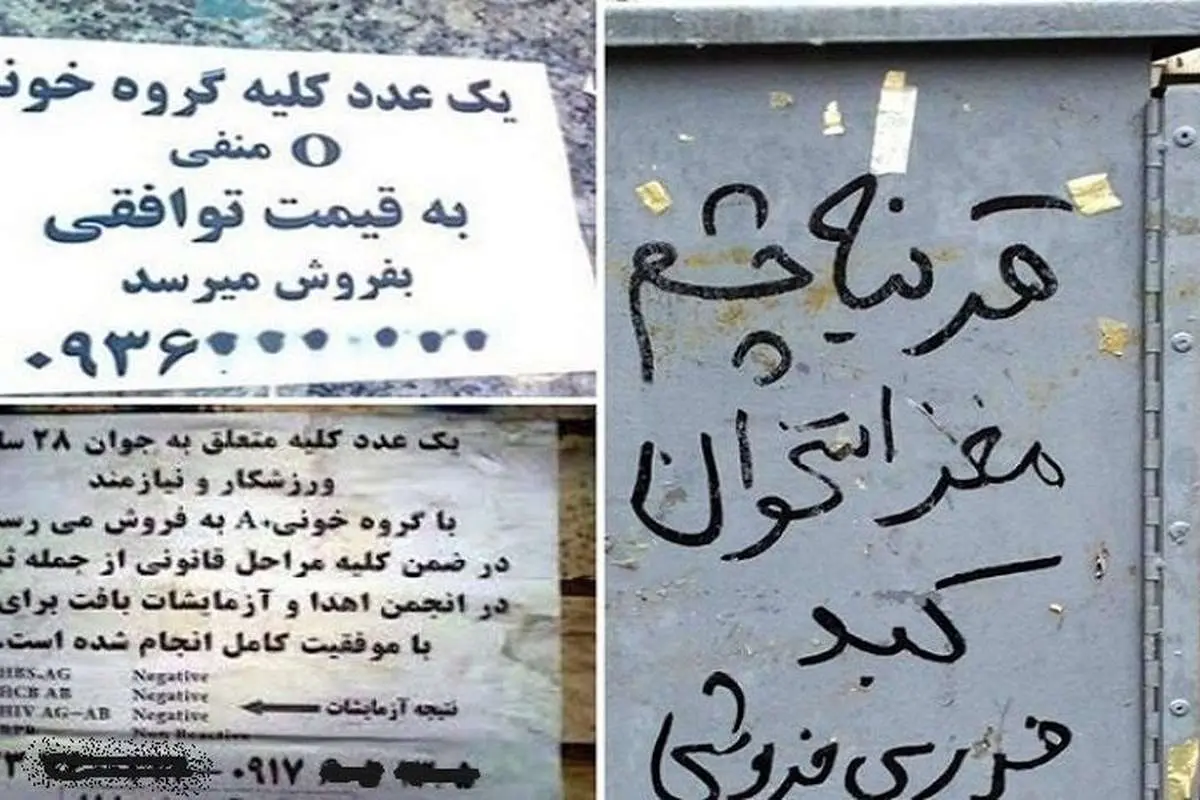 یک عدد کلیه گروه خونی
O منفی
به قیمت توافقی
بفروش میرسد
۰۹۳۶
یک عدد کلیه متعلق به جوان ۲۸ سا
ورزشکار و نیازمند
با گروه خونی A+ به فروش می رس
در ضمن کلیه مراحل قانونی از جمله ث
در انجمن اهدا و آزمایشات بافت برای
با موفقیت کامل انجام شده است.
HBS.AG Negative
HCB AB Negative
HIV AG-AB Negative
نتیجه آزمایشات
Non Reactive
۰۹۱۷
قرنیه چشم
مغز استخوان
کبد
فروشی